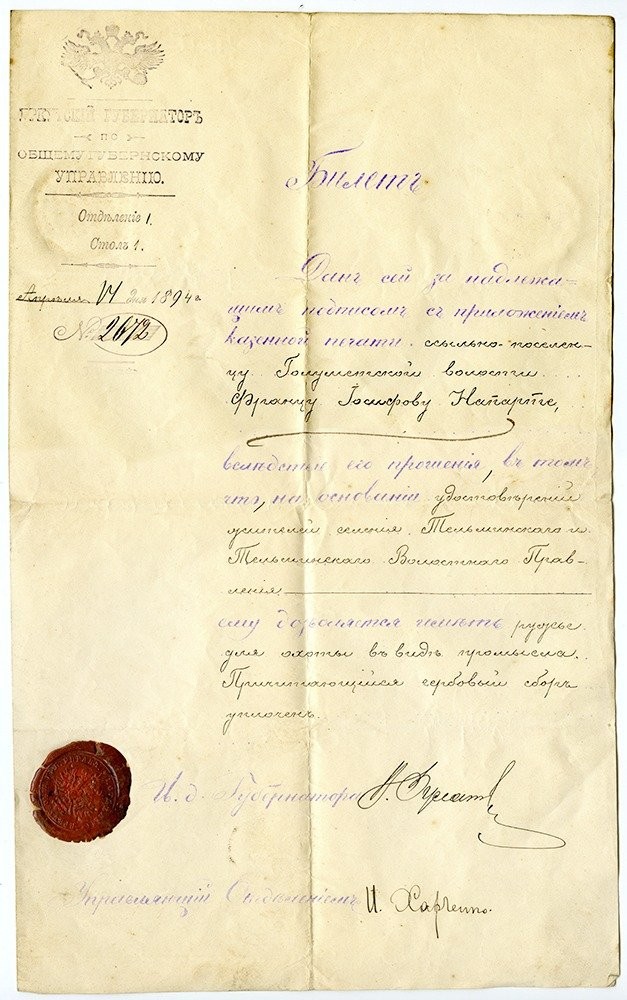 ИРКУТСКІЙ ГУБЕРНАТОРЪ
ПО
ОБЩЕМУ ГУБЕРНСКОМУ
УПРАВЛЕНІЮ.
Отдѣленіе 1.
Столъ 1.
Апрѣля 14 дня 1894 г
№ 2672
Билетъ
Данъ сей за надлежа-
щимъ подписомъ съ приложеніемъ
казенной печати ссыльно-поселен-
цу Голуметской волости
Францу Іосифову
вслѣдствіе его прошенія, въ томъ
что, на основаніи удостовѣреній
жителей селенія Тельминскаго и
Тельминскаго Волостнаго Прав-
ленія
ему дозволяется имѣть ружье
для охоты въ видѣ промысла.
Причитающійся гербовый сборъ
уплоченъ.
И. д. Губернатора
Управляющій Отдѣленіемъ И. Харченко.